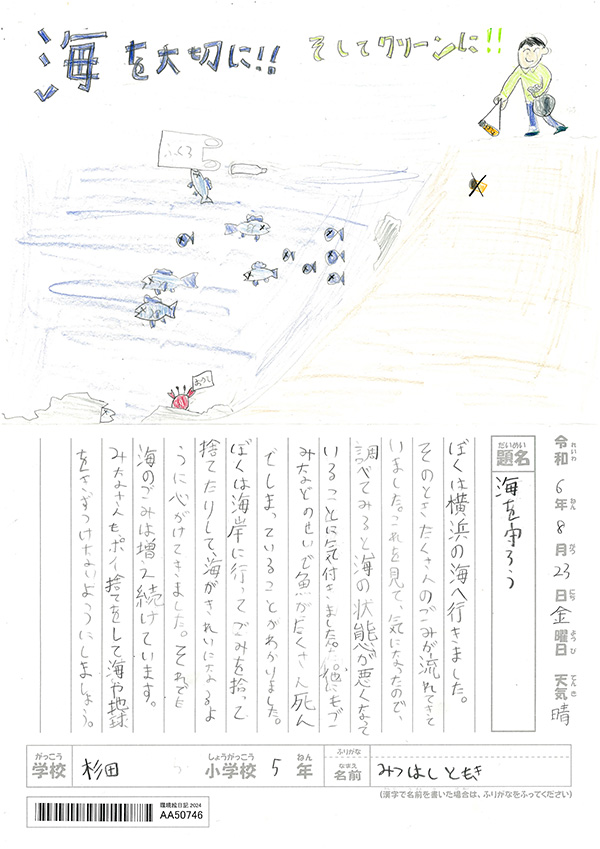 海を大切に!! そしてクリーンに!!
ふくろ
おうし
令和6年8月23日金曜日 天気 晴
れいわ ねん がつ にち ようび てんき
だいめい
題名
海を守ろう
ぼくは横浜の海へ行きました。
そのとき、たくさんのごみが流れてきて
いました。これを見て、気になったので、
調べてみると海の状態が悪くなって
いることに気付きました。他にもプー
みなどのせいで魚がたくさん死ん
でしまっていることがわかりました。
ぼくは海岸に行ってごみを拾って
捨てたりして、海がきれいになるよ
うに心がけてきました。それでも
海のごみは増え続けています。
みなさんも、ポイ捨てをして海や地球
をきずつけないようにしましょう。
がっこう
学校 杉田
しょうがっこう
小学校 5
ねん
年
ふりがな
なまえ
名前 みつはしともき
(漢字で名前を書いた場合は、ふりがなをふってください)
環境絵日記 2024
AA50746